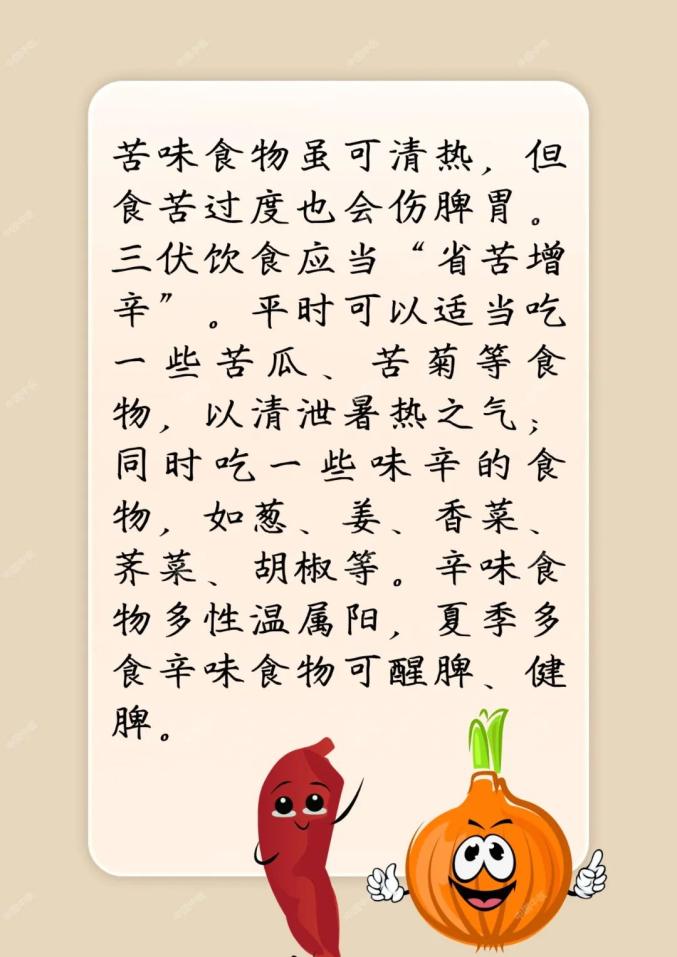 苦味食物虽可清热，但
食苦过度也会伤脾胃。
三伏饮食应当“省苦增
辛”。平时可以适当吃
一些苦瓜、苦菊等食
物，以清泄暑热之气；
同时吃一些味辛的食
物，如葱、姜、香菜、
荠菜、胡椒等。辛味食
物多性温属阳，夏季多
食辛味食物可醒脾、健
脾。